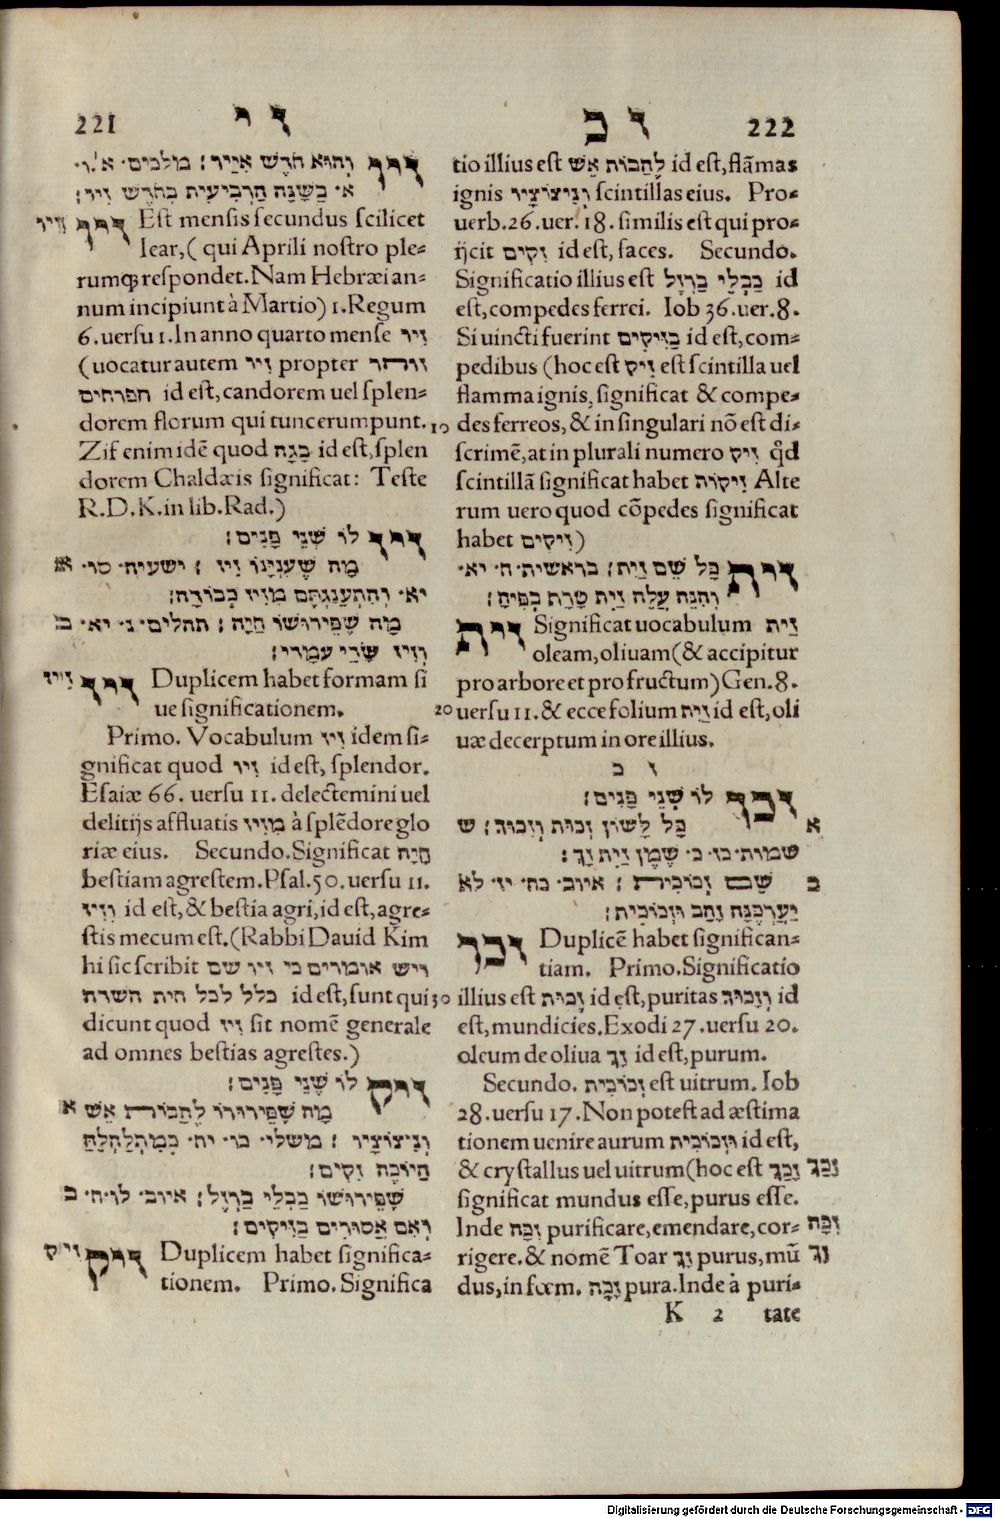 221
ז י
זיו
וְהוּא חֹדֶשׁ אִיַּיר׃ מלכים· א׳ו·
א· בַּשָּׁנָה הָרְבִיעִית בְּחֹדֶשׁ זִיו׃
זיו
זיו Est mensis secundus scilicet
Iear,(qui Aprili nostro ple=
rumq; respondet. Nam Hebræi an=
num incipiunt à Martio) 1.Regum
6.uersu 1.In anno quarto mense זִיו
(uocatur autem זִיו propter זוהר
הפרחים id est, candorem uel splen=
dorem florum qui tunc erumpunt.
Zif enim idē quod נֹגָה id est, splen
dorem Chaldæis significat: Teste
R.D.K.in lib.Rad.)
זיז לוֹ שְׁנֵי פָּנִים׃
א מַה שֶּׁעִנְיָנוֹ זִיו ׃ ישעיה· סו·
יא· וְהִתְעַנַּגְתֶּם מִזִּיז כְּבוֹדָהּ׃
ב מַה שֶּׁפֵּירוּשׁוֹ חַיָּה׃ תהלים· נ· יא·
וְזִיז שָׂדַי עִמָּדִי׃
זיז
זיז Duplicem habet formam si
ue significationem.
Primo. Vocabulum זִיז idem si=
gnificat quod זִיו id est, splendor.
Esaiæ 66. uersu 11. delectemini uel
delitijs affluatis מִזִּיז à splēdore glo
riæ eius. Secundo.Significat חַיָּה
bestiam agrestem.Psal.50.uersu 11.
וְזִיז id est,& bestia agri,id est, agre=
stis mecum est.(Rabbi Dauid Kim
hi sic scribit ויש אומרים כי זיז שם
כלל לכל חית השדה id est, sunt qui
dicunt quod זִיז sit nomē generale
ad omnes bestias agrestes.)
זיק לוֹ שְׁנֵי פָּנִים׃
א מַה שֶּׁפֵּירוּשׁוֹ לֶהָבוֹת אֵשׁ
וְנִיצוֹצָיו ׃ משלי· כו· יח· כְּמִתְלַהְלֵהַּ
הַיּוֹרֶה זִקִּים׃
ב שֶׁפֵּירוּשׁוֹ כַּבְלֵי בַרְזֶל׃ איוב· לו·ח·
וְאִם אֲסוּרִים בַּזִּיקִים׃
זיק
זיק Duplicem habet significa=
tionem. Primo.Significa
222
ז כ
tio illius est לֶהָבוֹת אֵשׁ id est, flāmas
ignis וְנִיצוֹצָיו scintillas eius. Pro=
uerb.26.uer.18.similis est qui pro=
ijcit זִקִים id est, faces. Secundo.
Significatio illius est כַּבְלֵי בַרְזֶל id
est, compedes ferrei. Iob 36.uer.8.
Si uincti fuerint בַּזִּיקִים id est, com=
pedibus (hoc est זִיק est scintilla uel
flamma ignis, significat & compe=
10 des ferreos,& in singulari nō est di=
scrimē,at in plurali numero זִיק qđ
scintillā significat habet זִיקוֹת Alte
rum uero quod cōpedes significat
habet זִיקִים)
זית כָּל שֵׁם זַיִת׃ בראשית·ח· יא·
וְהִנֵּה עֲלֵה זַיִת טָרָף בְּפִיהָ׃
זית Significat uocabulum זַיִת
oleam,oliuam(& accipitur
pro arbore et pro fructum) Gen.8.
20 uersu 11.& ecce folium זַיִת id est,oli
uæ decerptum in ore illius.
ז כ
זכך לוֹ שְׁנֵי פָּנִים׃
א כָּל לָשׁוֹן זַכּוּת וְזִכּוּךְ׃ ש
שמות·כז·כ· שֶׁמֶן זַיִת זָךְ׃
ב שֵׁם זְכוֹכִית ׃ איוב· כח· יז· לא
יַעַרְכֶנָּה זָהָב וּזְכוֹכִית׃
זכך Duplicē habet significan=
tiam. Primo.Significatio
30 illius est זַכּוּת id est,puritas וְזִכּוּךְ id
est,mundicies.Exodi 27.uersu 20.
oleum de oliua זָךְ id est,purum.
Secundo. זְכוֹכִית est uitrum. Iob
28.uersu 17.Non potest ad æstima
tionem uenire aurum וּזְכוֹכִית id est,
& crystallus uel uitrum(hoc est זָכַךְ זָכַךְ
significat mundus esse,purus esse.
Inde זִכָּה purificare,emendare,cor= זִכָּה
rigere.& nomē Toar זָךְ purus,mū זָךְ
dus,in fœm. זַכָּה pura.Inde à puri=
K 2 tate
Digitalisierung gefördert durch die Deutsche Forschungsgemeinschaft - DFG